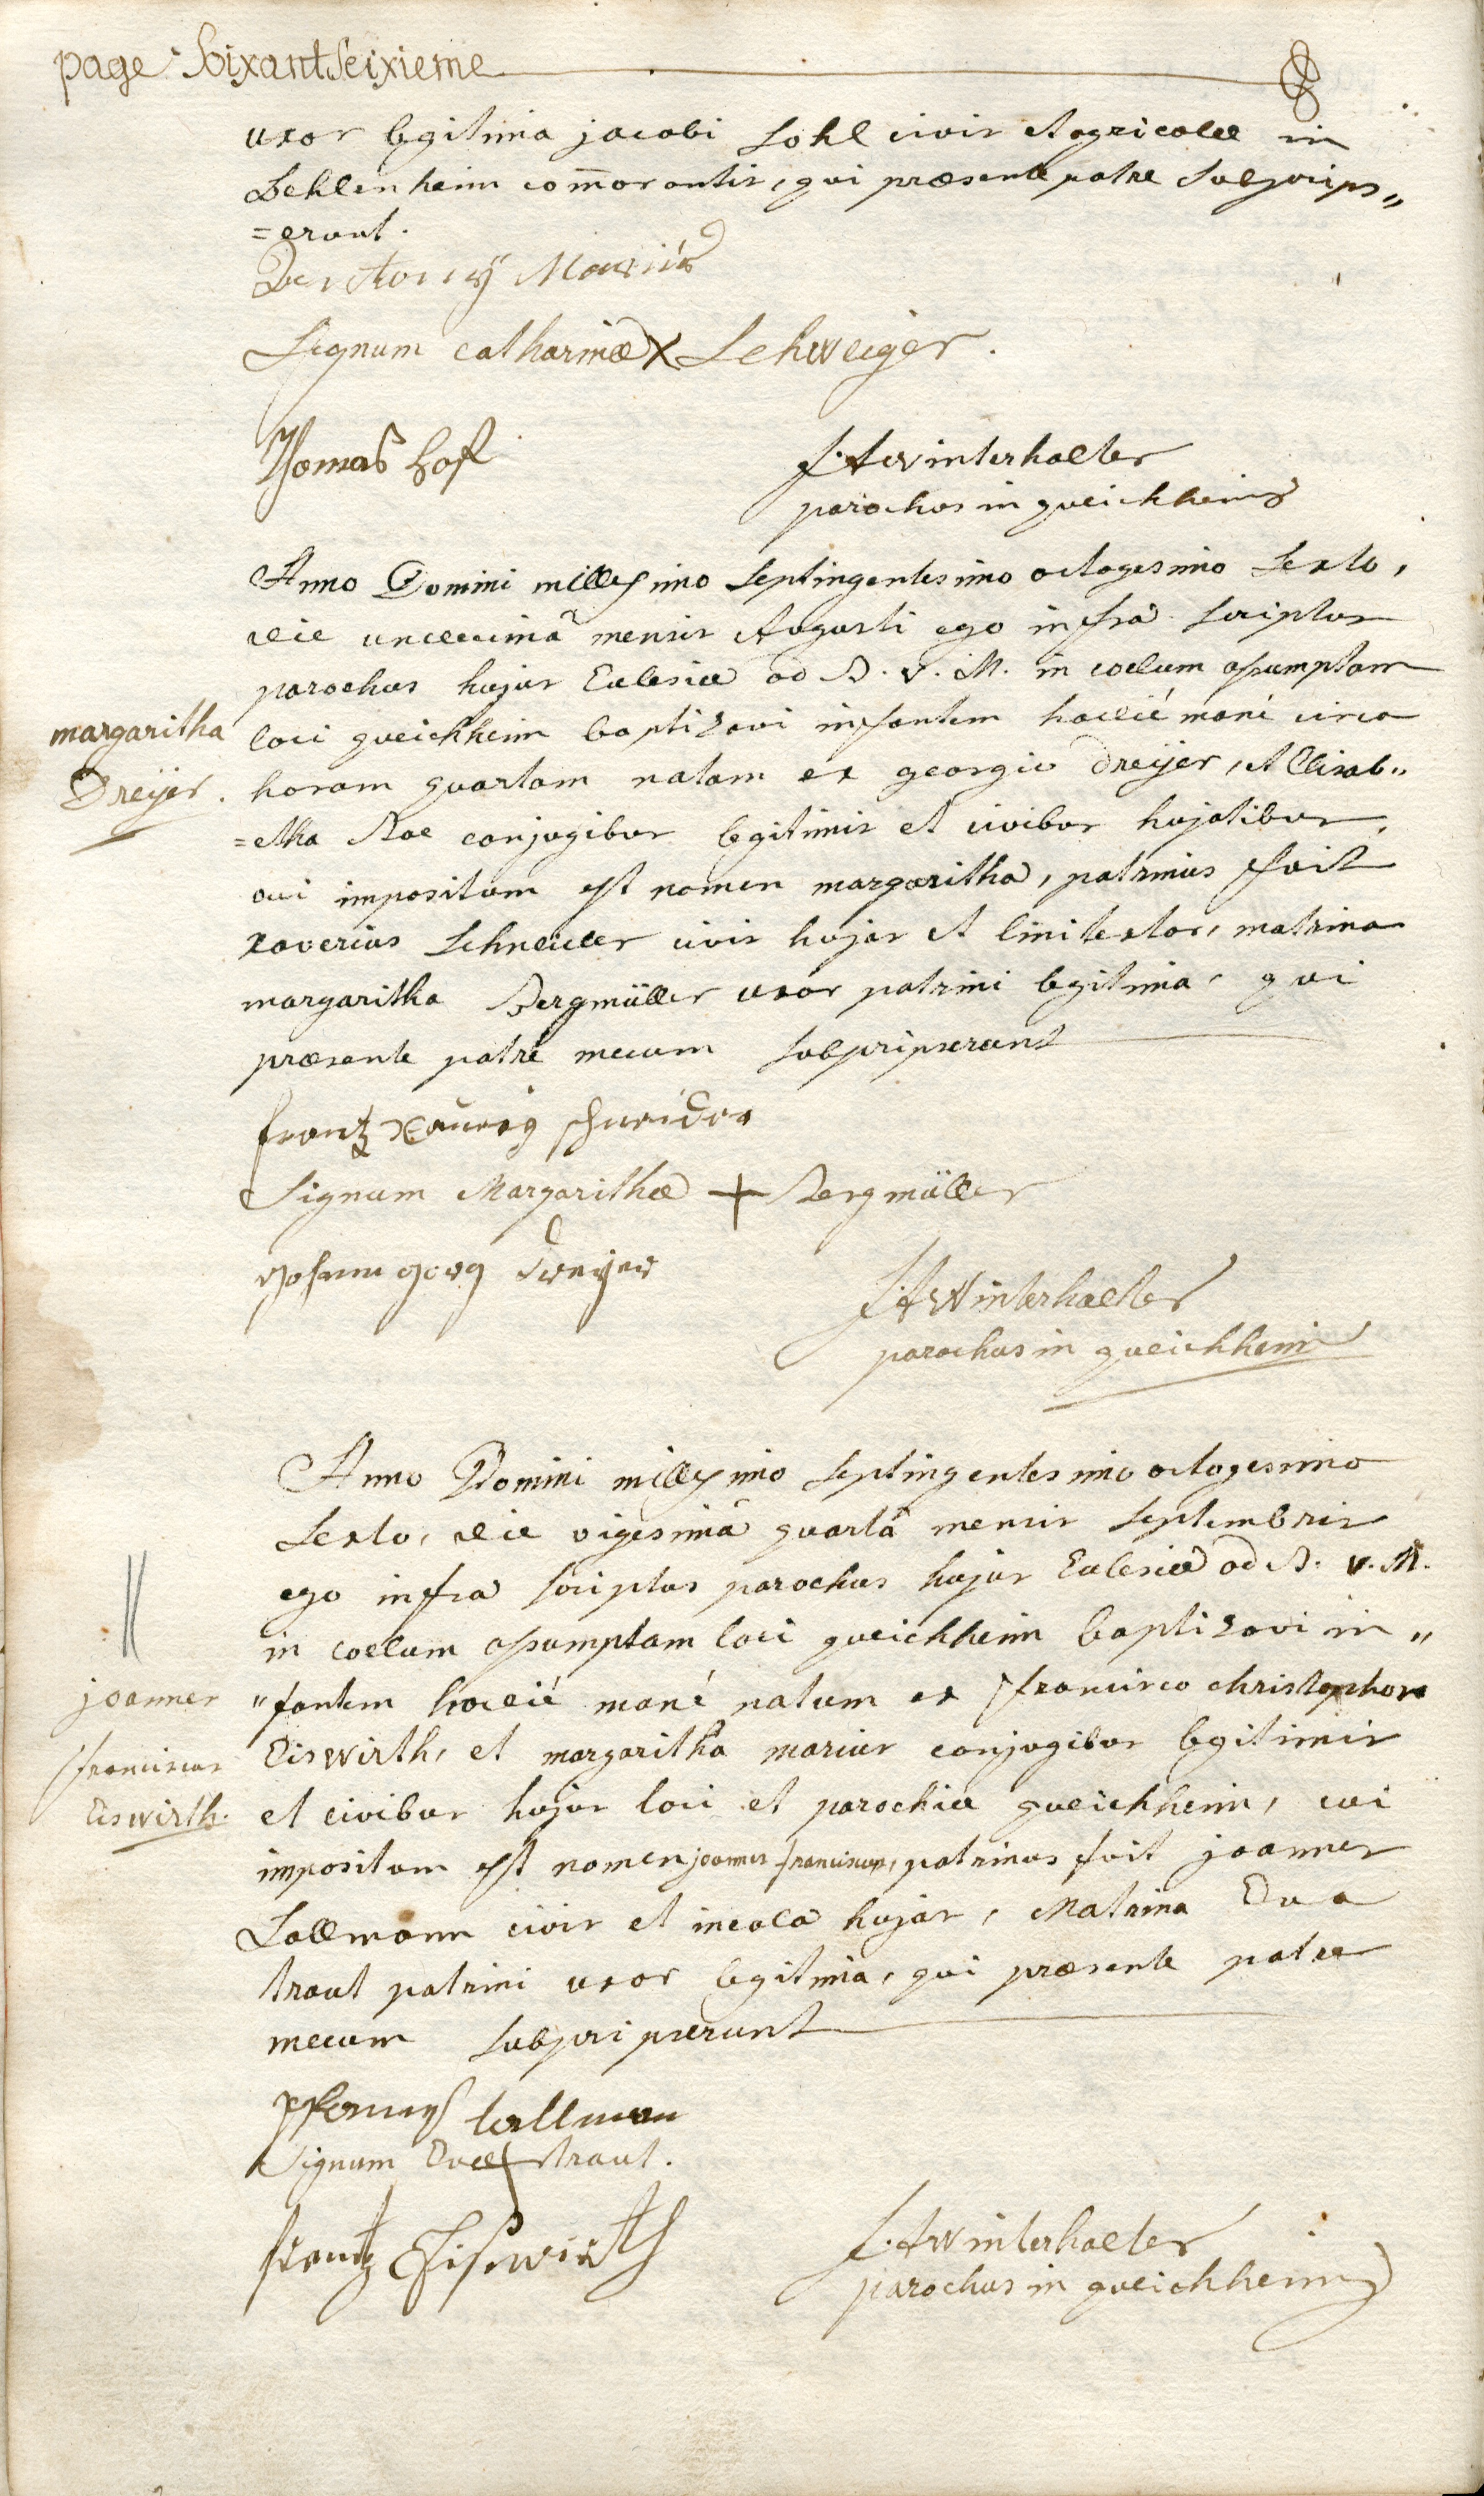 page Soixantseixieme
uxor legitima jacobi Sohl civis et agricolæ in
Behlenheim com̄orantis, qui præsente patre subscrips„
=erunt.
Signum catharinæ X Schweiger.
Thomas hoft
f. A winterhalter
parochus in gveichheim
Anno Domini millesimo septingentesimo octogesimo sexto,
die undecimâ mensis Augusti ego infrà scriptus
parochus hujus Eclesiæ ad B. v. M. in coelum assumptam
margaritha
Dreÿer.
loci gveichheim baptizavi infantem hac dié mané circa
horam quartam natam ex georgio Dreÿer, et Elisab„
=etha Roe conjugibus legitimis et civibus hujatibus,
cui impositum est nomen margaritha, patrinus fuit
xaverius Schneider civis hujas et linitextor, matrina
margaritha Bergmüller uxor patrini legitima, qui
præsente patre mecum subscripserunt
frantz Xauerÿ schneider
Signum Margarithæ + Bergmüller
Johann georg Dreÿer
f. A Winterhalter
parochus in gveichheim
Anno Domini millesimo septingentesimo octogesimo
sexto, die vigesimâ quartâ mensis septembris
ego infra scriptus parochus hujus Eclesiæ ad B. v. M.
in coelum assumptam loci gveichheim baptizavi in„
joannes
franciscus
Eiswirth.
„fantem hac dié mané natum ex francisco christophoro
Eiswirth, et margaritha marius conjugibus legitimis
et civibus hujus loci et parochiæ gveichheim, cui
impositum est nomen joannes franciscus, patrinus fuit joannes
Lallmann civis et incola hujas, Matrina Eva
traut patrini uxor legitima, qui præsente patre
mecum subscripserunt
lallman
Signum Evæ + traut.
frantz Eisswirth
f. A winterhalter
parochus in gveichheim